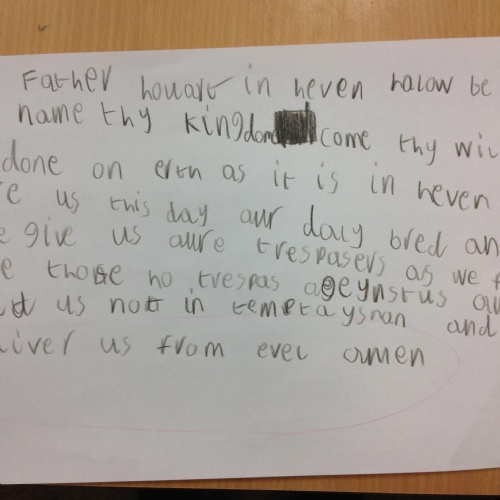 Father houart in heven halow be
name thy kingdome come thy wil
done on erth as it is in heven
us this day our daly bred an
give us aure trespasers as we f
those ho trespas ageynstus
us not in temptaysnan and
liver us from evel amen